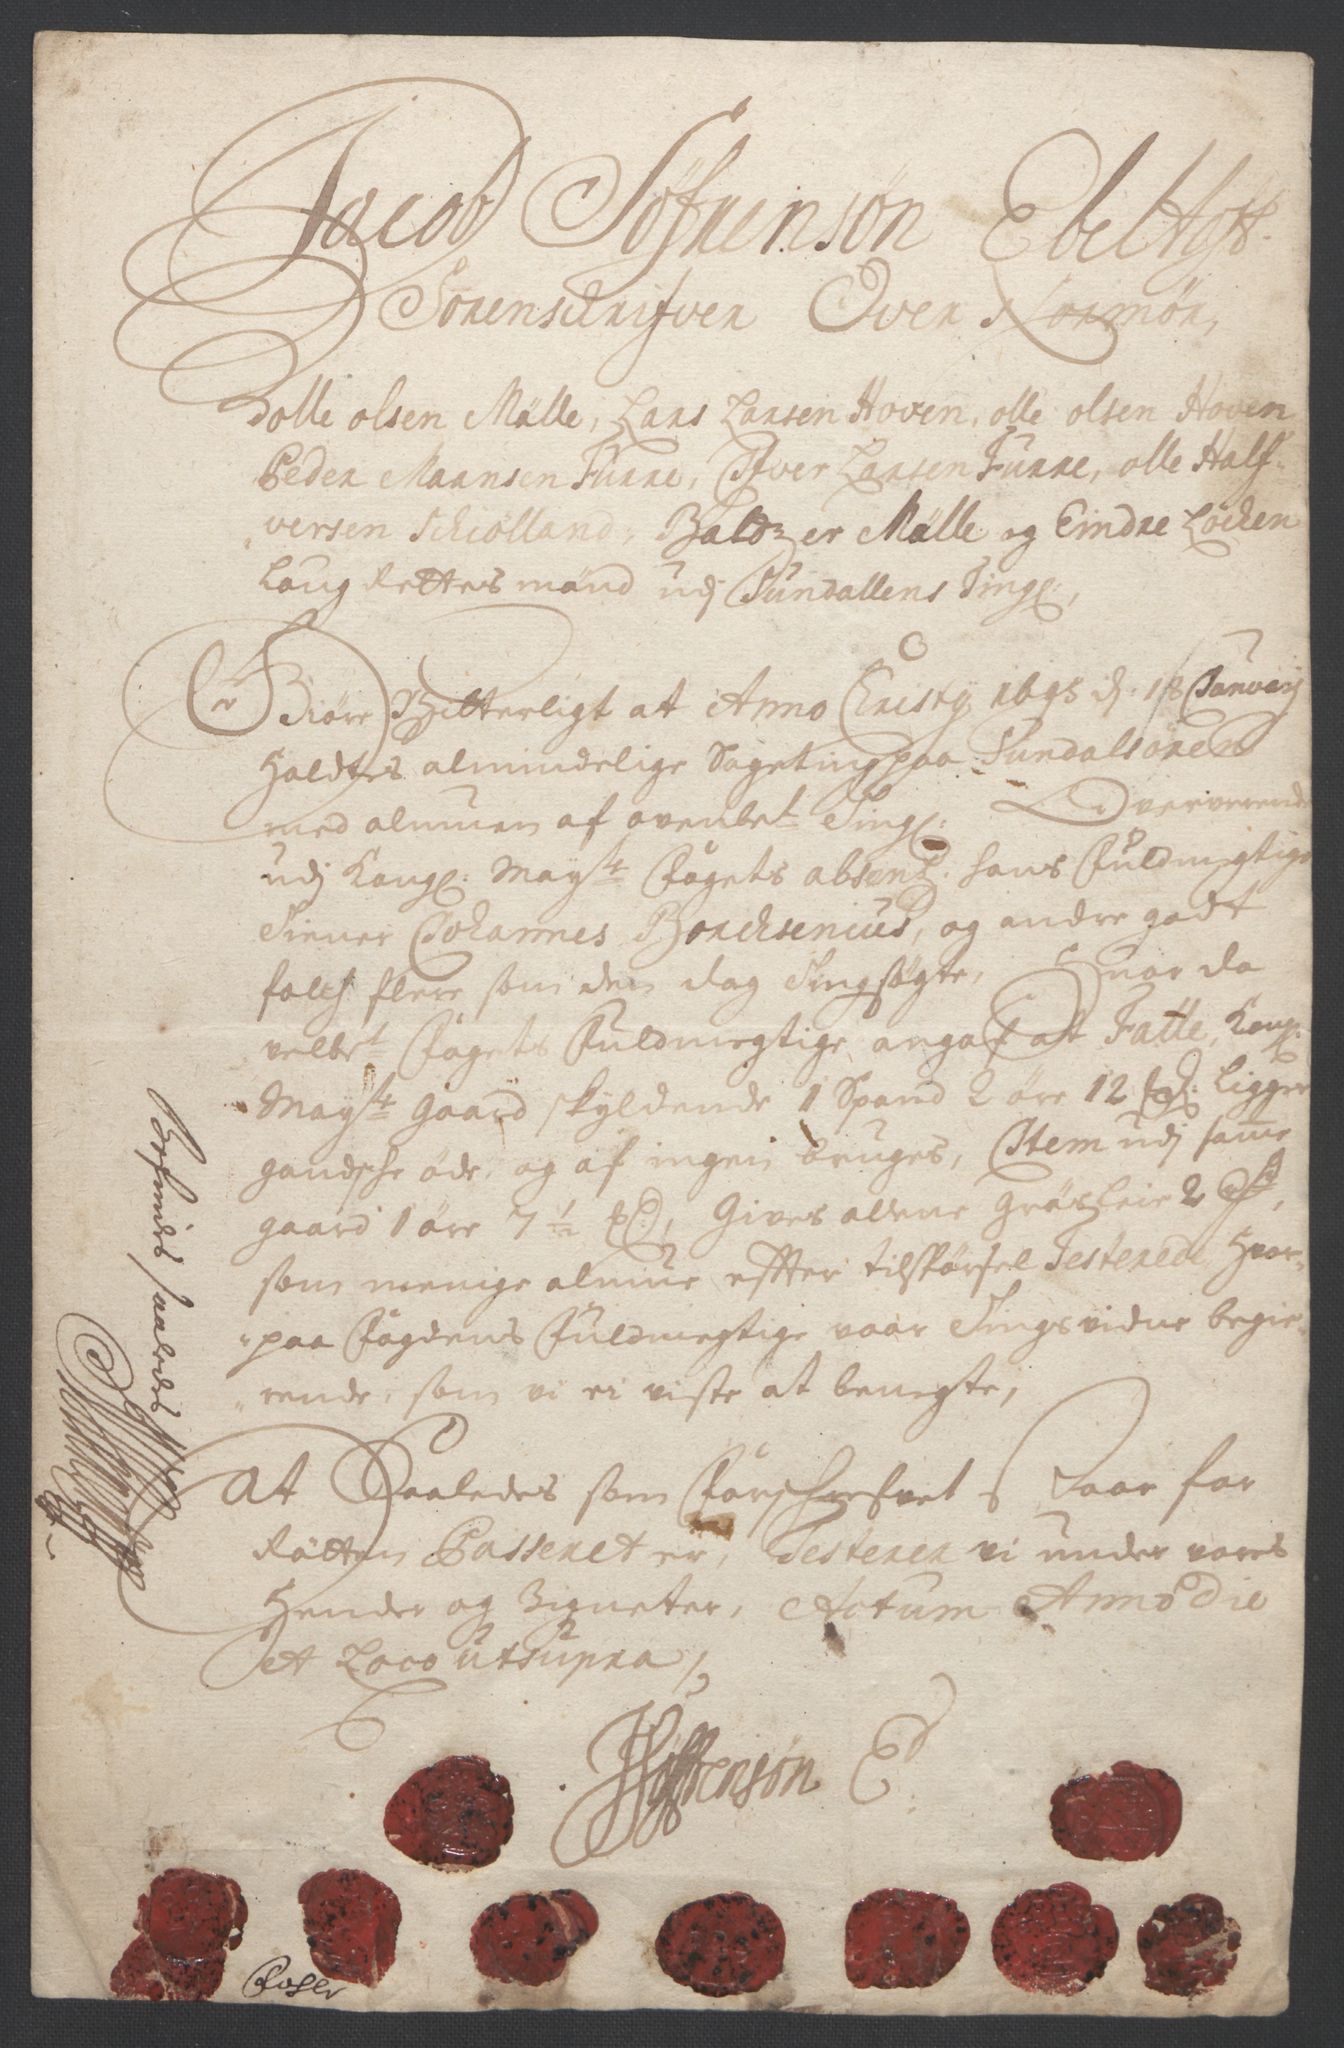 Jacob Söfrensøn Ebeltoft
Sorenschrifver Over Normør,
olle olsen Mälle, Lars Larsen Hoven, olle olsen Hoven
Peder Monsen Furre, Ifver Larsen Furre, olle Half-
versen Schiölland, Baldzer Mälle og Eindre Löchen
Laug Rettes mänd udj Sundallens Tingl.,
Giöre Vitterligt at Anno Cristy 1695 d. 18 Janvarij
Holdtes almindelige Sageting paa Sundalsören
med almuen af ovenbete Tingl. Oververende
udj Kongl. Mayts Fogets absentz. hans Fuldmegtige
Tiener Johannes Borchsenius, og andre godt
folch flere som den dag Tingsøgte, Hvor da
velbete Fogets Fuldmegtige angaf at Fatle, Kongl.
Mayts Gaard skyldende 1 Spand 2 öre 12 ℔. Ligger
gandsche öde, og af ingen bruges, Item udj samme
gaard 1 öre 7½ ℔, Gives allene Gräsleie 2 ,
som menige almue effter tilspörsel Testerede, Hvor-
paa Fogdens Fuldmegtige vaar Tingsvidne begie-
rende, som vi ei viste at benegte,
At Saaledes som Forschrefvet Vaar for
Rätten Passeret er, Testerer vi under vores
Hender og Zigneter, Actum Anno Die
et Loco ut supra,
JSöffrensøn E
Befindes saaledes